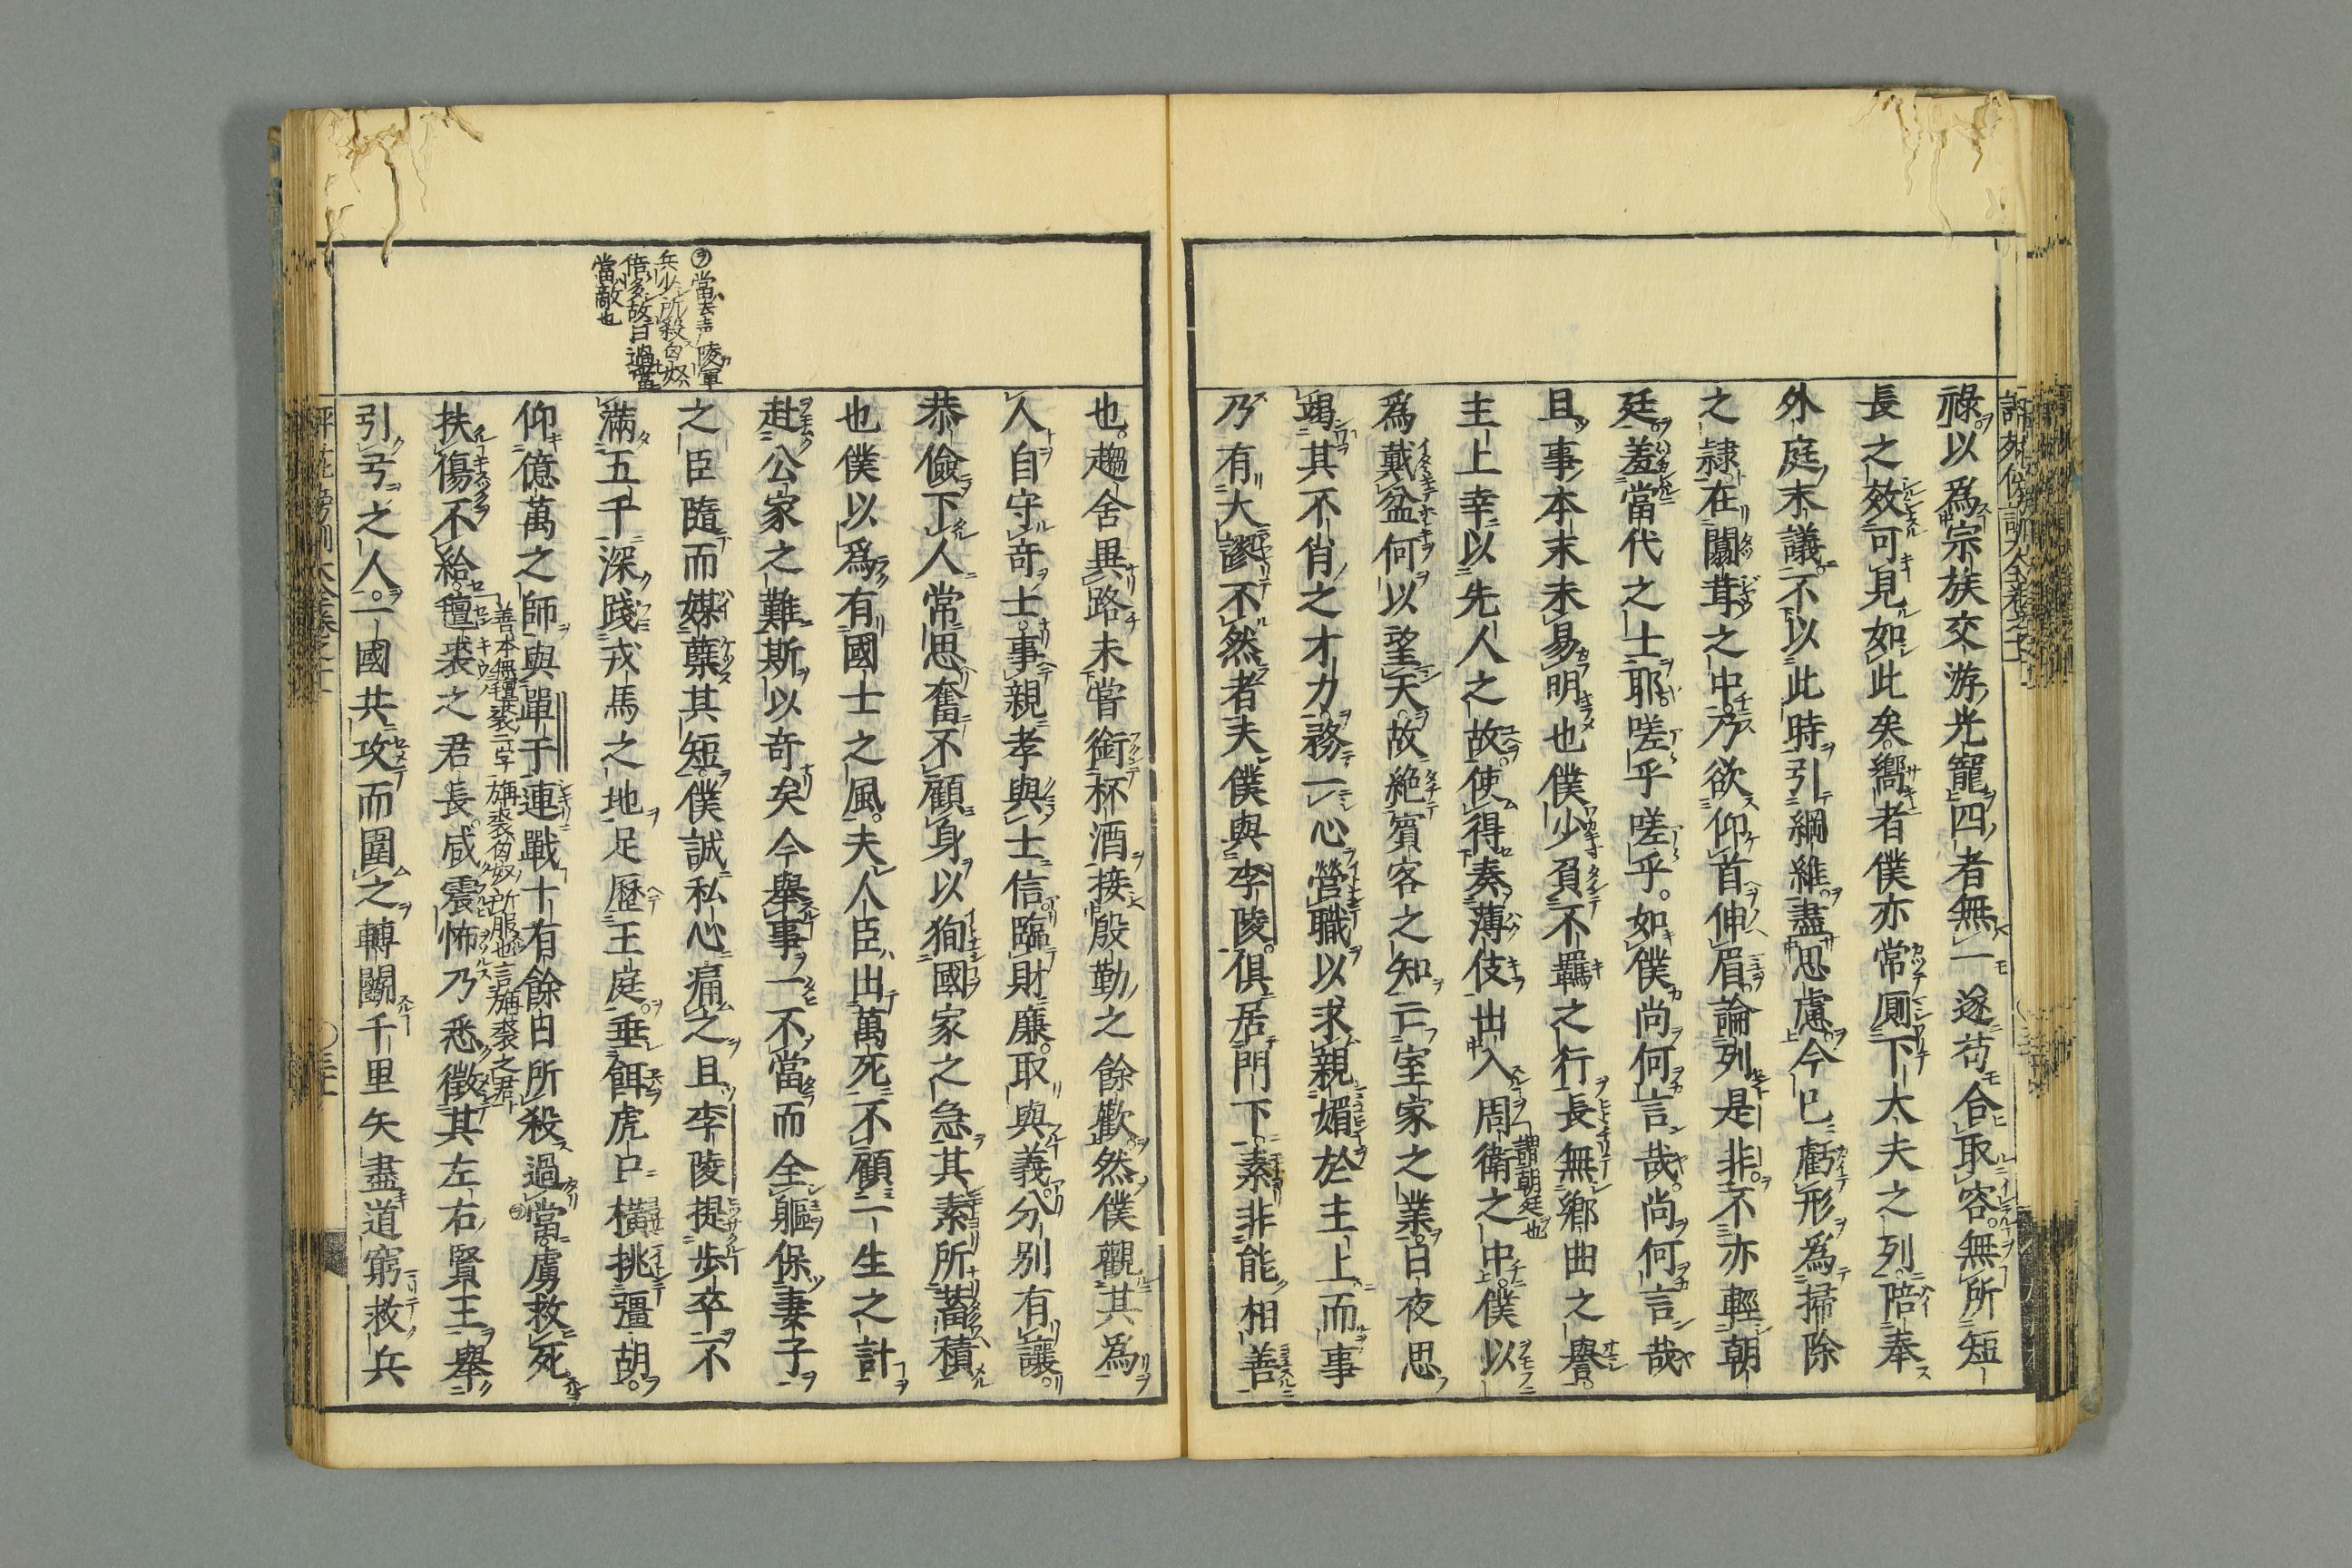 祿以爲宗族交游光寵四者無一遂苟合取容無所短
長之效可見如此矣嚮者僕亦常厠下大夫之列陪奉
外庭末議不以此時引綱維盡思慮今已虧形爲掃除
之隷在闒茸之中乃欲仰首伸眉論列是非不亦輕朝
廷羞當代之士耶嗟乎嗟乎如僕尚何言哉尚何言哉
且事本末未易明也僕少負不羈之行長無鄉曲之譽
主上幸以先人之故使得奏薄伎出入周衛之中僕以
謂朝廷也
爲戴盆何以望天故絶賓客之知亡室家之業日夜思
竭其不肖之才力務一心營職以求親媚於主上而事
乃有大謬不然者夫僕與李陵俱居門下素非能相善
也趨舍異路未嘗銜杯酒接殷勤之餘歡然僕觀其爲
人自守奇士事親孝與士信臨財廉取與義分別有讓
恭儉下人常思奮不顧身以狥國家之急其素所蓄積
也僕以爲有國士之風夫人臣出萬死不顧一生之計
赴公家之難斯以奇矣今舉事一不當而全軀保妻子
之臣隨而媒糵其短僕誠私心痛之且李陵提步卒不
滿五千深踐戎馬之地足歷王庭垂餌虎口橫挑彊胡
仰億萬之師與單于連戰十有餘日所殺過當虜救死
扶傷不給氊裘之君長咸震怖乃悉徵其左右賢王舉
善本無氊裘二字旃裘匈奴所服也言旃裘之君
引弓之人一國共攻而圍之轉鬬千里矢盡道窮救兵
㋾當去声陵軍
兵少所殺匈奴
倍多故曰過當
當敵也